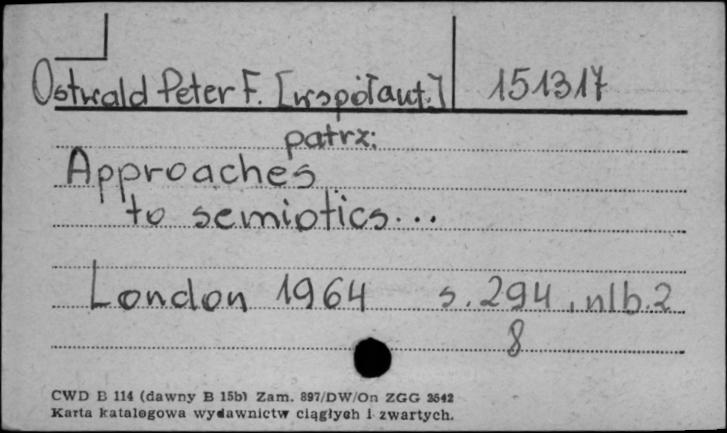 Ostwald Peter F. [współaut.] 151317
patrz:
Approaches
to semiotics...
London 1964 s. 294, nlb. 2
8
CWD B 114 (dawny B 15b) Zam. 897/DW/On ZGG 3542
Karta katalogowa wydawnictw ciągłych i zwartych.